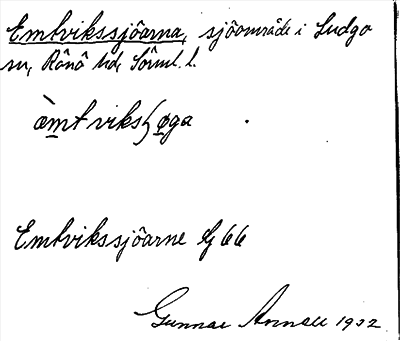 Emtvikssjöarna, sjöområde i Ludgo
sn, Rönö hd, Söml. l.
æmtviksʃøga
Emtvikssjöarne G 66
Gunnar Annell 1932